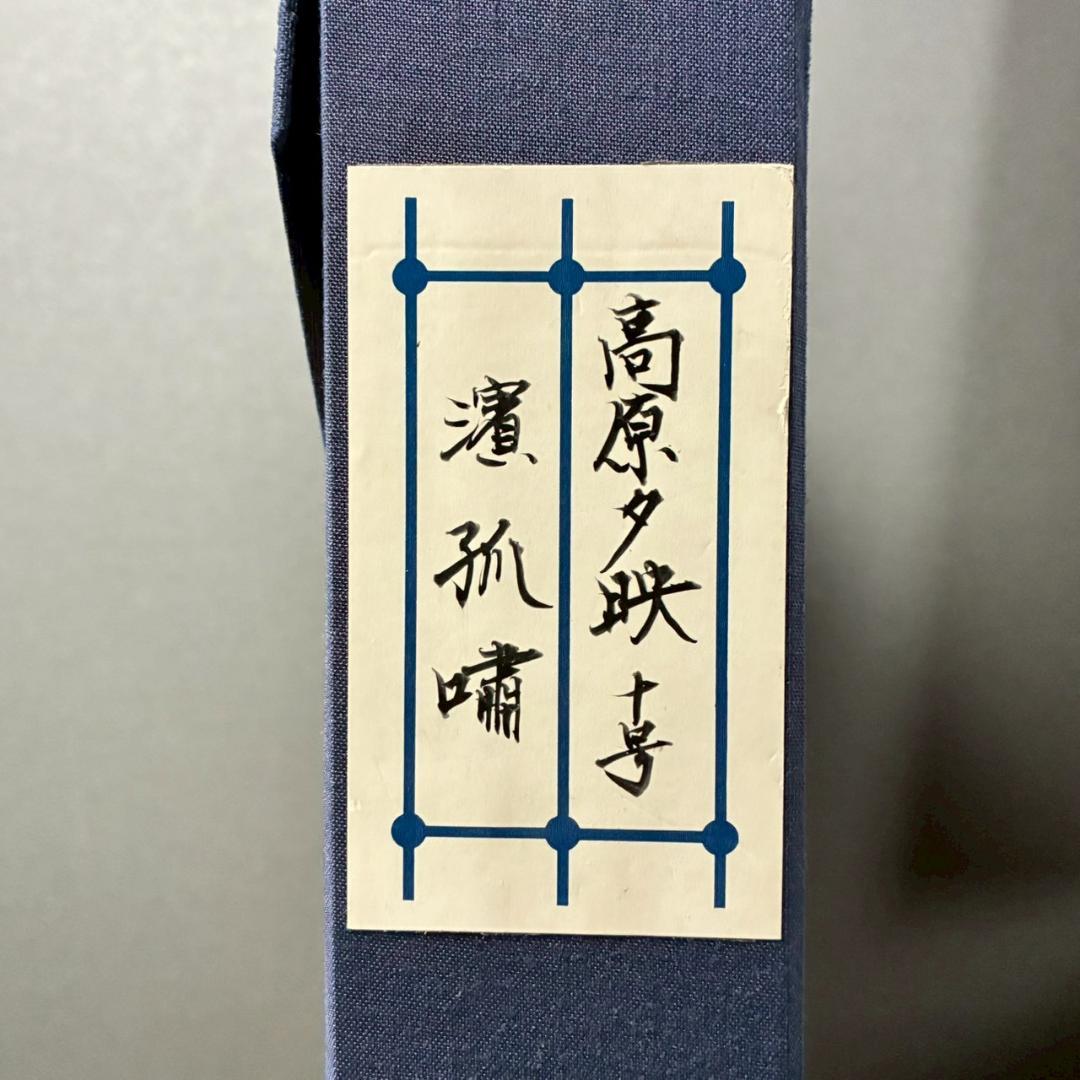 高原夕映 十号
濱孤嘯